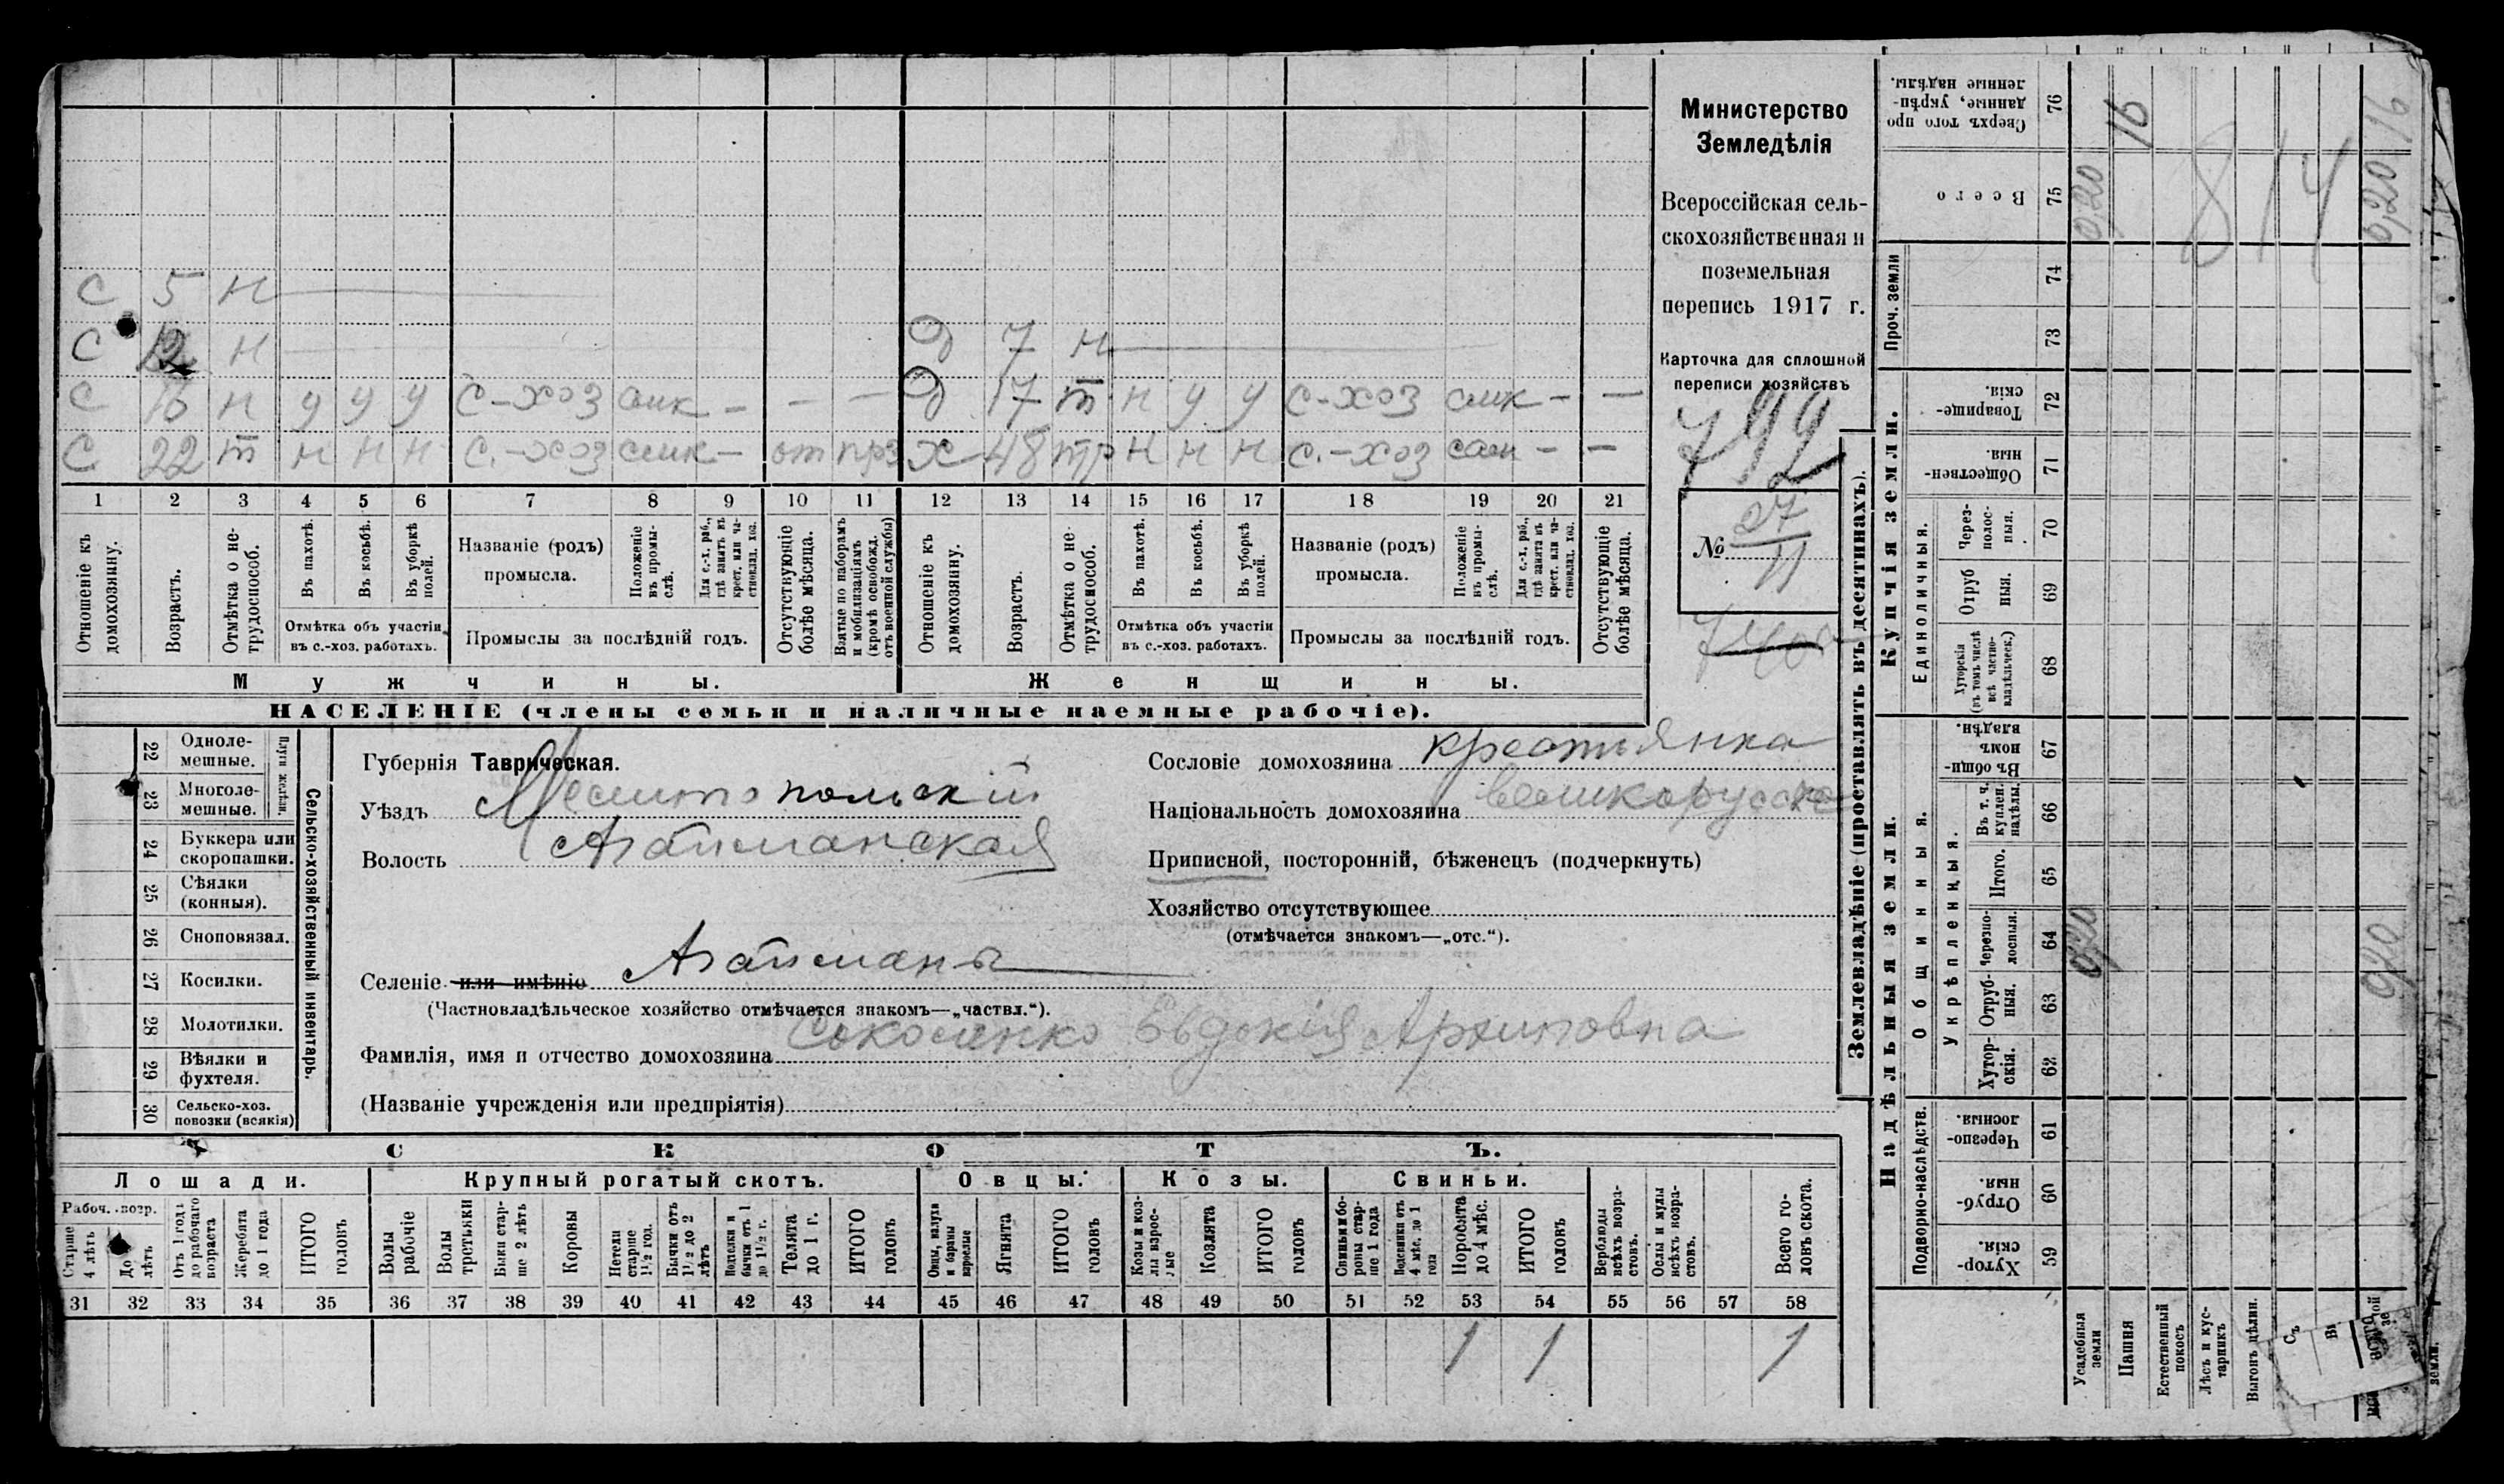 С 5 н
С 12 н
Д 7 н
С 16 н у у у С-хоз
Д 17 т н у у С-хоз
С 22 т н н н С.-хоз от
Х 48 тр н н н С.-хоз
1 2 3 4 5 6 7 8 9 10 11 12 13 14 15 16 17 18 19 20 21
Отношеніе къ домохозяину.
Возрастъ.
Отмѣтка о нетрудоспособ.
Въ пахотѣ.
Въ косьбѣ.
Въ уборкѣ полей.
Отмѣтка объ участіи
въ с.-хоз. работахъ.
Названіе (родъ)
промысла.
Положеніе въ промыслѣ.
Для с.-х. раб., гдѣ занятъ въ крест. или частновлад. хоз.
Промыслы за послѣдній годъ.
Отсутствующіе болѣе мѣсяца.
Взятые по наборамъ и мобилизаціямъ (кромѣ освобожд. отъ военной службы)
Отношеніе къ домохозяину.
Возрастъ.
Отмѣтка о нетрудоспособ.
Въ пахотѣ.
Въ косьбѣ.
Въ уборкѣ полей.
Отмѣтка объ участіи
въ с.-хоз. работахъ.
Названіе (родъ)
промысла.
Положеніе въ промыслѣ.
Для с.-х. раб., гдѣ занята въ крест. или частновлад. хоз.
Промыслы за послѣдній годъ.
Отсутствующіе болѣе мѣсяца.
Мужчины.
Женщины.
НАСЕЛЕНІЕ (члены семьи и наличные наемные рабочіе).
Министерство
Земледѣлія
Всероссійская сель-
скохозяйственная и
поземельная
перепись 1917 г.
Карточка для сплошной
переписи хозяйствъ
792
№ 27
11
Сельско-хозяйственный инвентарь.
Плуги желѣзн.
22 Одноле-
мешные.
23 Многоле-
мешные.
24 Буккера или
скоропашки.
25 Сѣялки
(конныя).
26 Сноповязал.
27 Косилки.
28 Молотилки.
29 Вѣялки и
фухтеля.
30 Сельско-хоз.
повозки (всякія)
Губернія Таврическая.
Уѣздъ Мелитопольскій
Волость Агайманская
Селеніе или имѣніе Агайманы
(Частновладѣльческое хозяйство отмѣчается знакомъ—„частвл.“).
Фамилія, имя и отчество домохозяина Соколенко Евдокія Архиповна
(Названіе учрежденія или предпріятія)
Сословіе домохозяина крестьянка
Національность домохозяина
Приписной, посторонній, бѣженецъ (подчеркнуть)
Хозяйство отсутствующее
(отмѣчается знакомъ—„отс.“).
СКОТЪ.
Лошади.
Крупный рогатый скотъ.
Овцы.
Козы.
Свиньи.
Рабоч. возр.
Старше 4 лѣтъ
До лѣтъ
Отъ 1 года до рабочаго возраста
Жеребята до 1 года
ИТОГО головъ
Волы рабочіе
Волы третьяки
Быки старше 2 лѣтъ
Коровы
Нетели старше 1½ год.
Бычки отъ 1½ до 2 лѣтъ
Телки и бычки отъ 1 до 1½ г.
Телята до 1 г.
ИТОГО головъ
Овцы, валухи и бараны взрослые
Ягнята
ИТОГО головъ
Козы и козлы взрослые
Козлята
ИТОГО головъ
Свиньи и боровы старше 1 года
Подсвинки отъ 4 мѣс. до 1 года
Поросята до 4 мѣс.
ИТОГО головъ
Верблюды всѣхъ возрастовъ.
Ослы и мулы всѣхъ возрастовъ.
Всего головъ скота.
31 32 33 34 35 36 37 38 39 40 41 42 43 44 45 46 47 48 49 50 51 52 53 54 55 56 57 58
1 1 1
Землевладѣніе (проставлять въ десятинахъ).
Купчія земли.
Надѣльныя земли.
Сверхъ того проданные, укрѣпленные надѣлы. 76 16
Всего 75 0,20 0,20 16
814
Проч. земли
74
73
Товарищескія. 72
Общественныя. 71
Единоличныя.
Черезполосныя. 70
Отрубныя. 69
Хуторскія (въ томъ числѣ всѣ частновладѣльческ.) 68
Общинныя.
Въ общинномъ владѣн. 67
Укрѣпленныя.
Въ т. ч. куплен. надѣлы. 66
Итого. 65
Черезполосныя. 64 0,20 0,20
Отрубныя. 63
Хуторскія. 62
Подворно-наслѣдств.
Черезполосныя. 61
Отрубныя. 60
Хуторскія. 59
Усадебныя земли
Пашня
Естественный покосъ
Лѣсъ и кустарникъ
Выгонъ цѣлин.